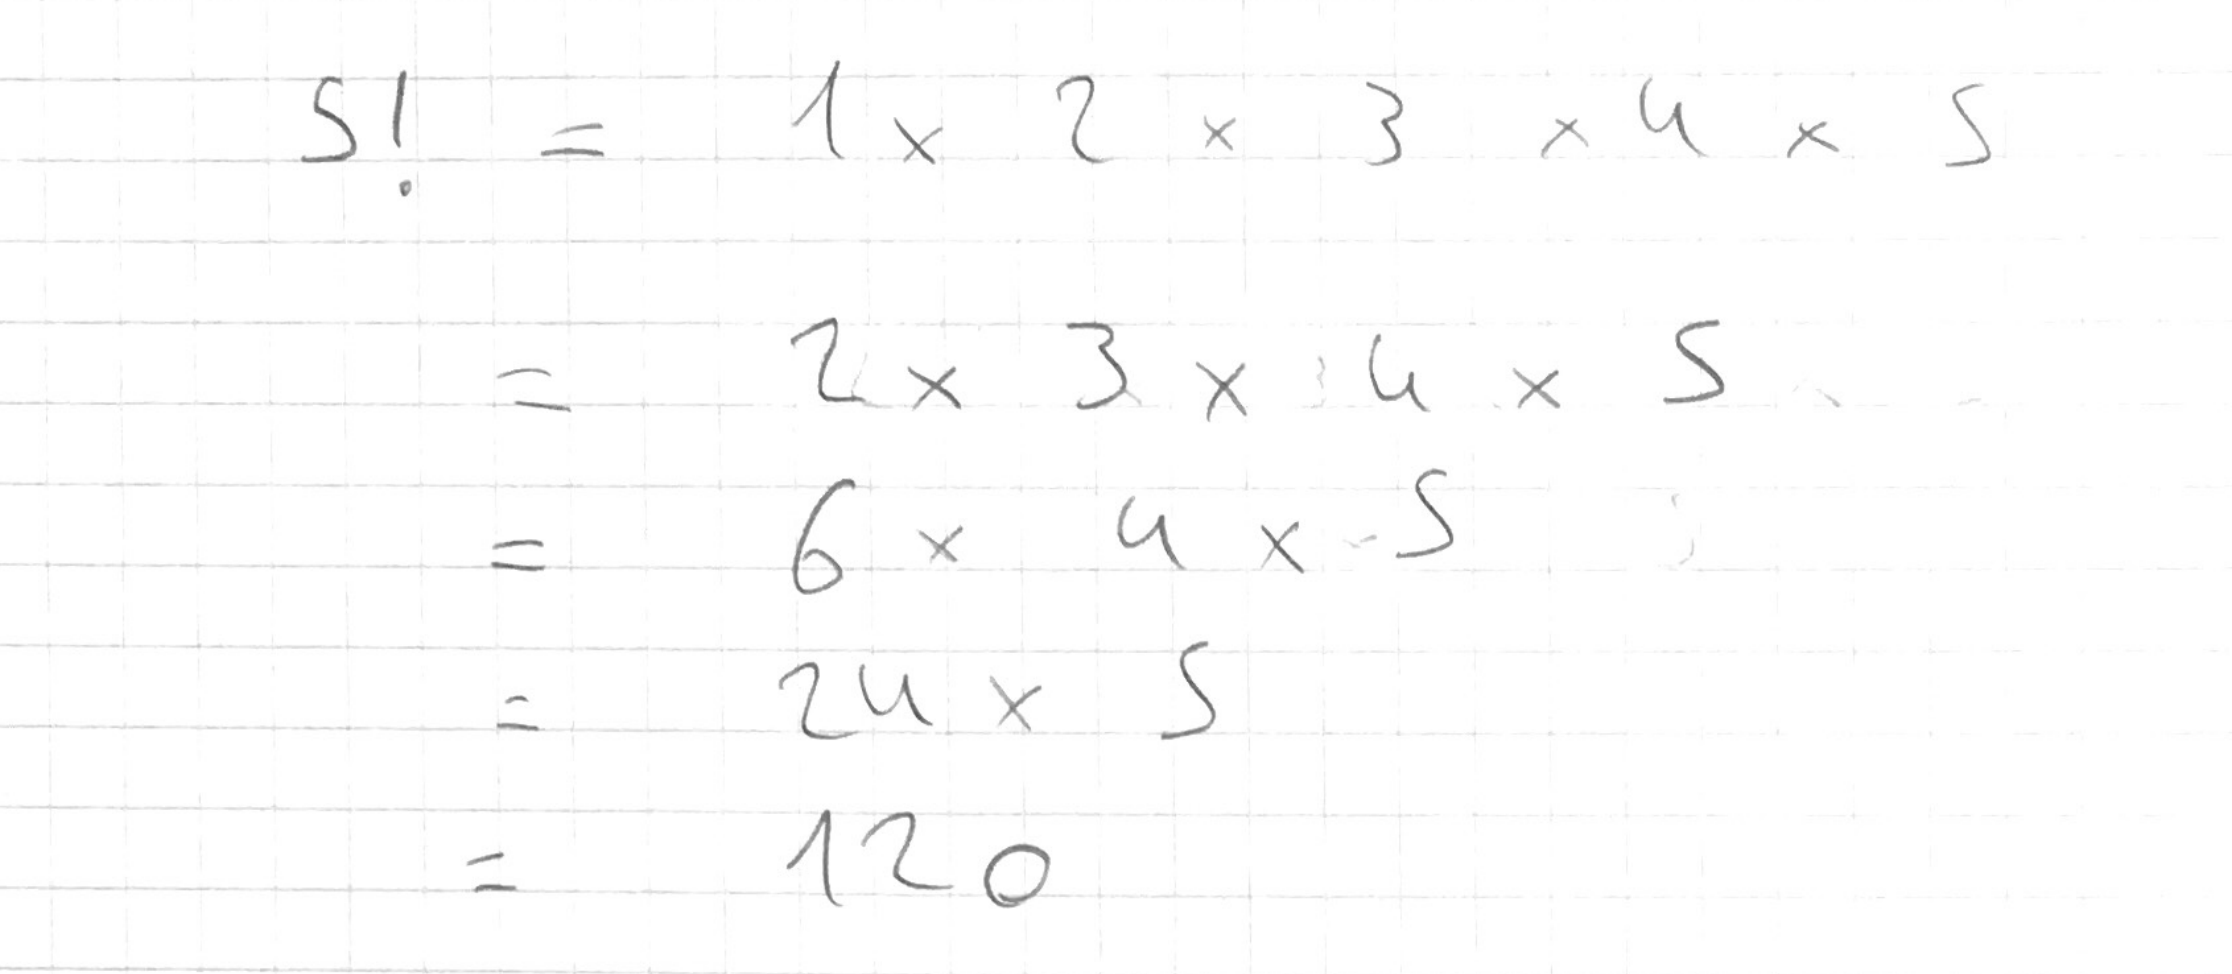 5! = 1 × 2 × 3 × 4 × 5
= 2 × 3 × 4 × 5
= 6 × 4 × 5
= 24 × 5
= 120